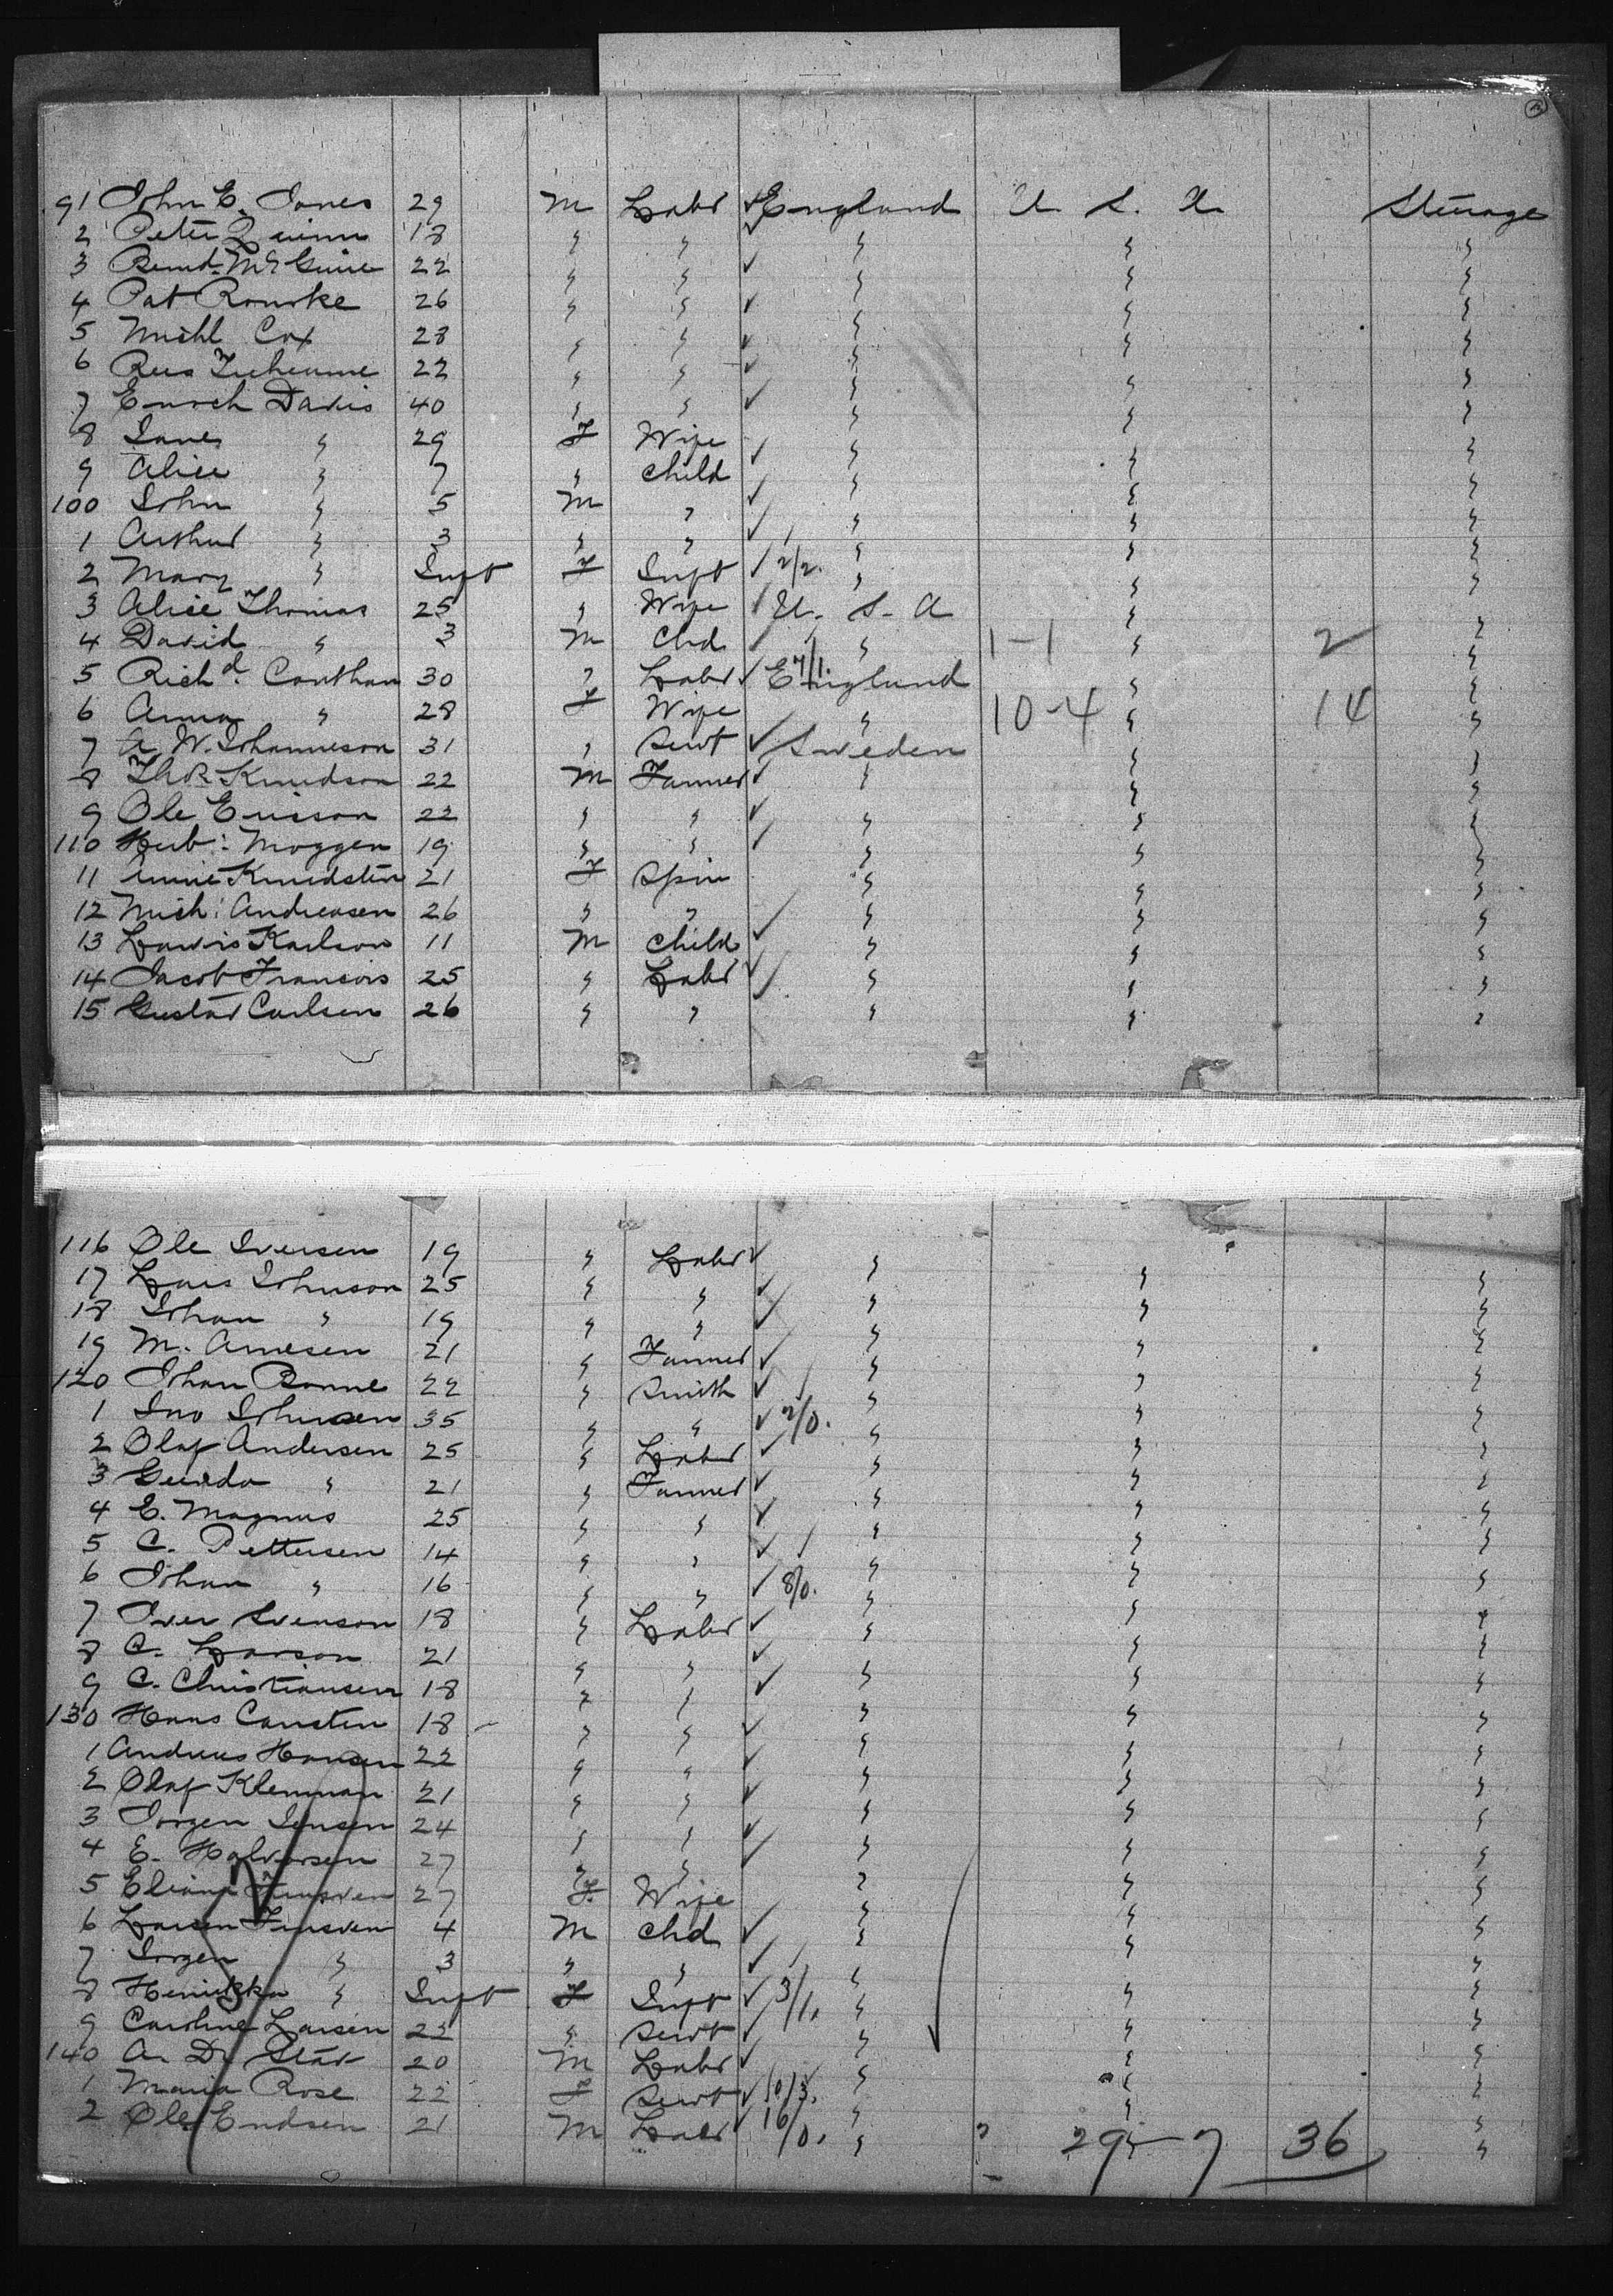 91 John E. Jones 29 M Labr ✓ England U. S. A. Steerage
2 Peter Quinn 18 " " ✓ " " "
3 Bernd. McGuire 22 " " ✓ " " "
4 Pat Rourke 26 " " ✓ " " "
5 Michl Cox 28 " " ✓ " " "
6 Rees Treherne 22 " " ✓ " " "
7 Enoch Davis 40 " " ✓ " " "
8 Jane " 29 F Wife ✓ " " "
9 Alice " 7 " Child ✓ " " "
100 John " 5 M " ✓ " " "
1 Arthur " 3 " " ✓ " " "
2 Mary " Inft F Inft ✓ 2/2. " " "
3 Alice Thomas 25 " Wife ✓ U. S. A " "
4 David " 3 M Chd ✓ " 1-1 " 2 "
5 Richd. 30 " Labr ✓ England " "
6 Anna " 28 F Wife " 10-4 " 14 "
7 A. W. Johanneson 31 " Servt ✓ Sweden " "
8 Knudson 22 M Farmer ✓ " " "
9 Ole Ericson 22 " " ✓ " " "
110 Moggen 19 " " ✓ " " "
11 Annie Knudsten 21 F Spin " " "
12 Mich: Andreasen 26 " " ✓ " " "
13 Lawis Karlson 11 M Child " " "
14 Jacob Francois 25 " Labr ✓ " " "
15 Gustav Carlsen 26 " " " " "
116 Ole Iversen 19 " Labr ✓ " " "
17 Lars Johnson 25 " " ✓ " " "
18 Johan " 19 " " ✓ " " "
19 M. Arnesen 21 " Farmer ✓ " " "
120 Johan 22 " Smith ✓ " " "
1 Jno Johnsen 35 " " ✓ 2/0. " " "
2 Olaf Andersen 25 " Labr ✓ " " "
3 " 21 " Farmer ✓ " " "
4 E. Magnus 25 " " ✓ " " "
5 C. Pettersen 14 " " ✓ " " "
6 Johan " 16 " " ✓ 8/0. " " "
7 Iver Svenson 18 " Labr ✓ " " "
8 C. Larson 21 " " ✓ " " "
9 C. Christiansen 18 " " ✓ " " "
130 Hans Carsten 18 " " ✓ " " "
1 Andreas Hansen 22 " " ✓ " " "
2 Olaf Klemman 21 " " ✓ " " "
3 Jorgen Jensen 24 " " ✓ " " "
4 E. Halvorsen 27 " " ✓ " " "
5 27 F. Wife " " "
6 Larsen 4 M Chd ✓ " " "
7 Jorgen " 3 " " ✓ " " "
8 " Inft F Inft ✓ 3/1. " " "
9 Caroline Larsen 22 " Servt ✓ " " "
140 20 M Labr ✓ " " "
1 Maria Rose 22 F Servt ✓ 10/3. " " "
2 Ole Endsen 21 M Labr ✓ 16/0. " 29 - 7 36 "